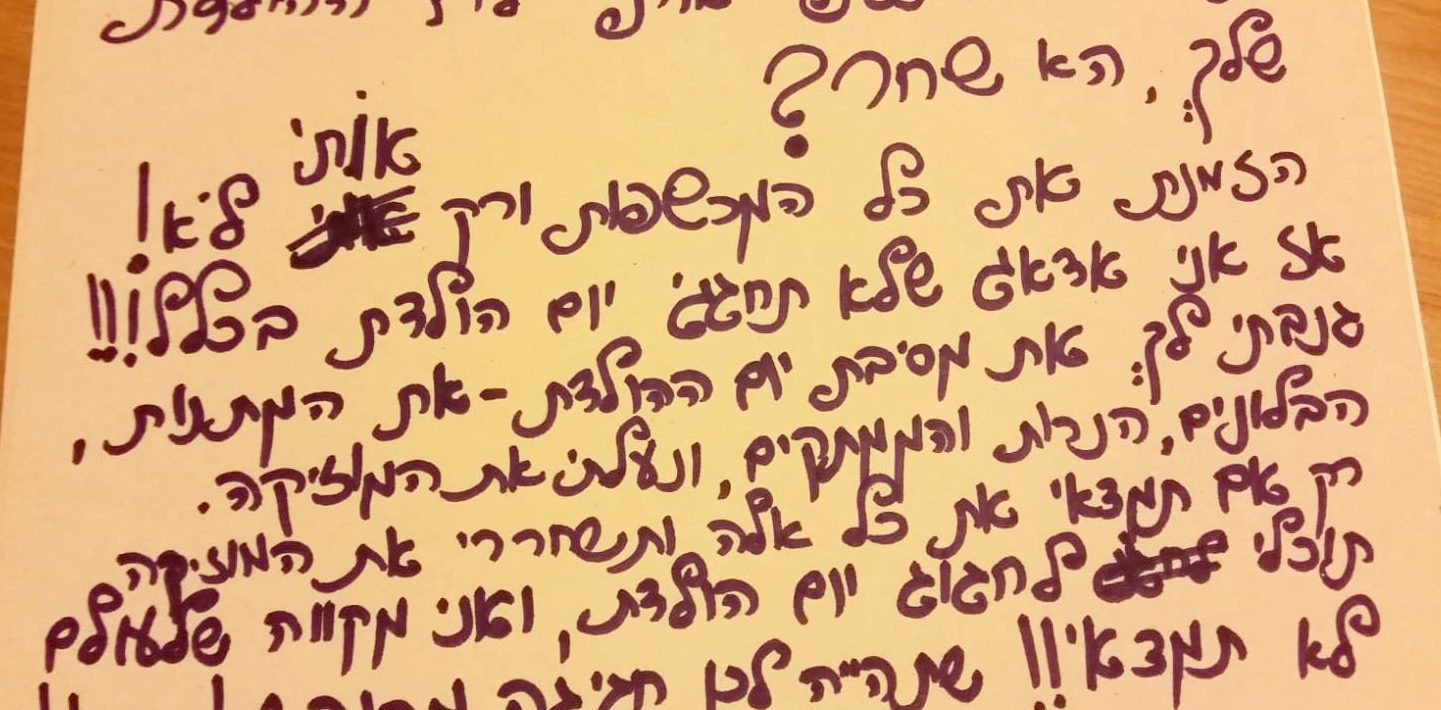 שלך, הא שחר?
הזמנת את כל המכשפות ורק אותי לא!
אז אני אדאג שלא תחגגי יום הולדת בכלל!!!
גנבתי לך את מסיבת יום ההולדת - את המתנות,
הבלונים, הנרות והממתקים, ונעלתי את המוזיקה.
רק אם תמצאי את כל אלה ותשחררי את המוזיקה
תוכלי לחגוג יום הולדת, ואני מקווה שלעולם
לא תמצאי!! שתהייה לכן חגיגה